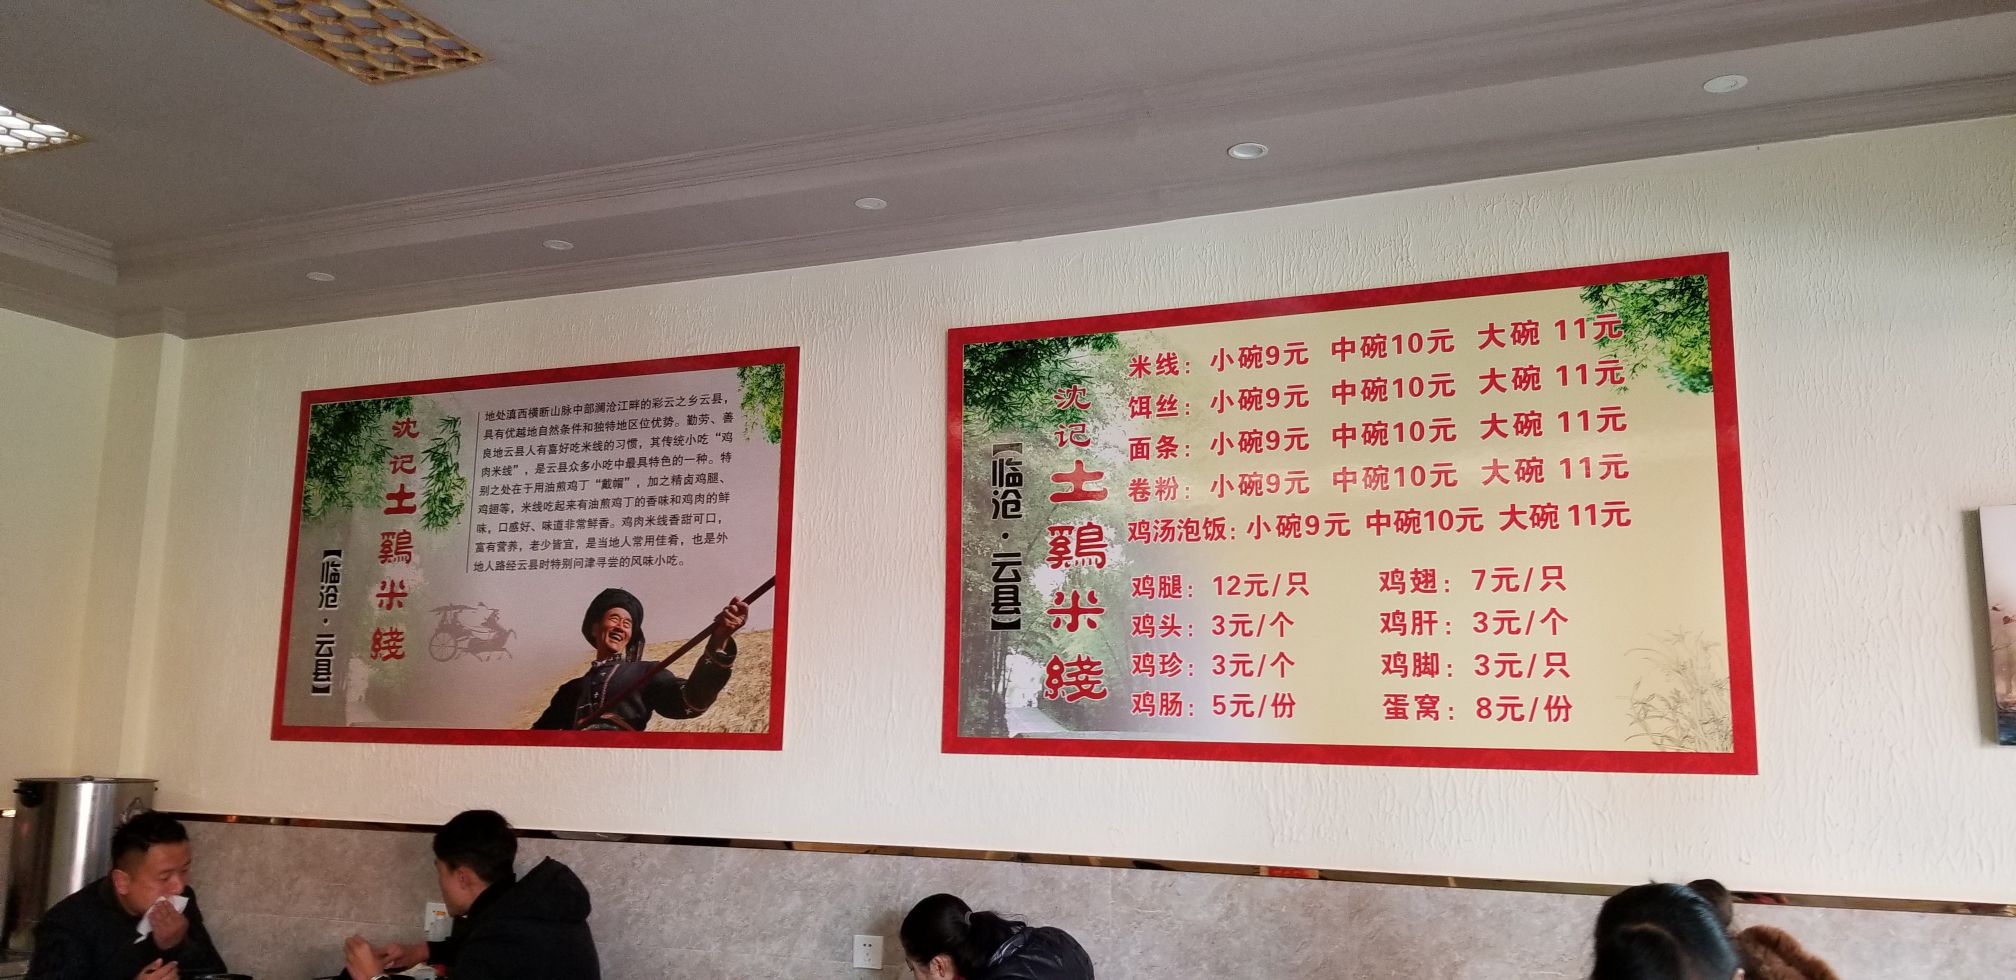 沈记土鷄米綫
【临沧·云县】
地处滇西横断山脉中部澜沧江畔的彩云之乡云县，
具有优越地自然条件和独特地区位优势。勤劳、善
良地云县人有喜好吃米线的习惯，其传统小吃“鸡
肉米线”，是云县众多小吃中最具特色的一种。特
别之处在于用油煎鸡丁“戴帽”，加之精卤鸡腿、
鸡翅等，米线吃起来有油煎鸡丁的香味和鸡肉的鲜
味，口感好、味道非常鲜香。鸡肉米线香甜可口，
富有营养，老少皆宜，是当地人常用佳肴，也是外
地人路经云县时特别问津寻尝的风味小吃。
沈记土鷄米綫
【临沧·云县】
米线：小碗9元 中碗10元 大碗 11元
饵丝：小碗9元 中碗10元 大碗 11元
面条：小碗9元 中碗10元 大碗 11元
卷粉：小碗9元 中碗10元 大碗 11元
鸡汤泡饭：小碗9元 中碗10元 大碗11元
鸡腿：12元/只 鸡翅：7元/只
鸡头：3元/个 鸡肝：3元/个
鸡珍：3元/个 鸡脚：3元/只
鸡肠：5元/份 蛋窝：8元/份